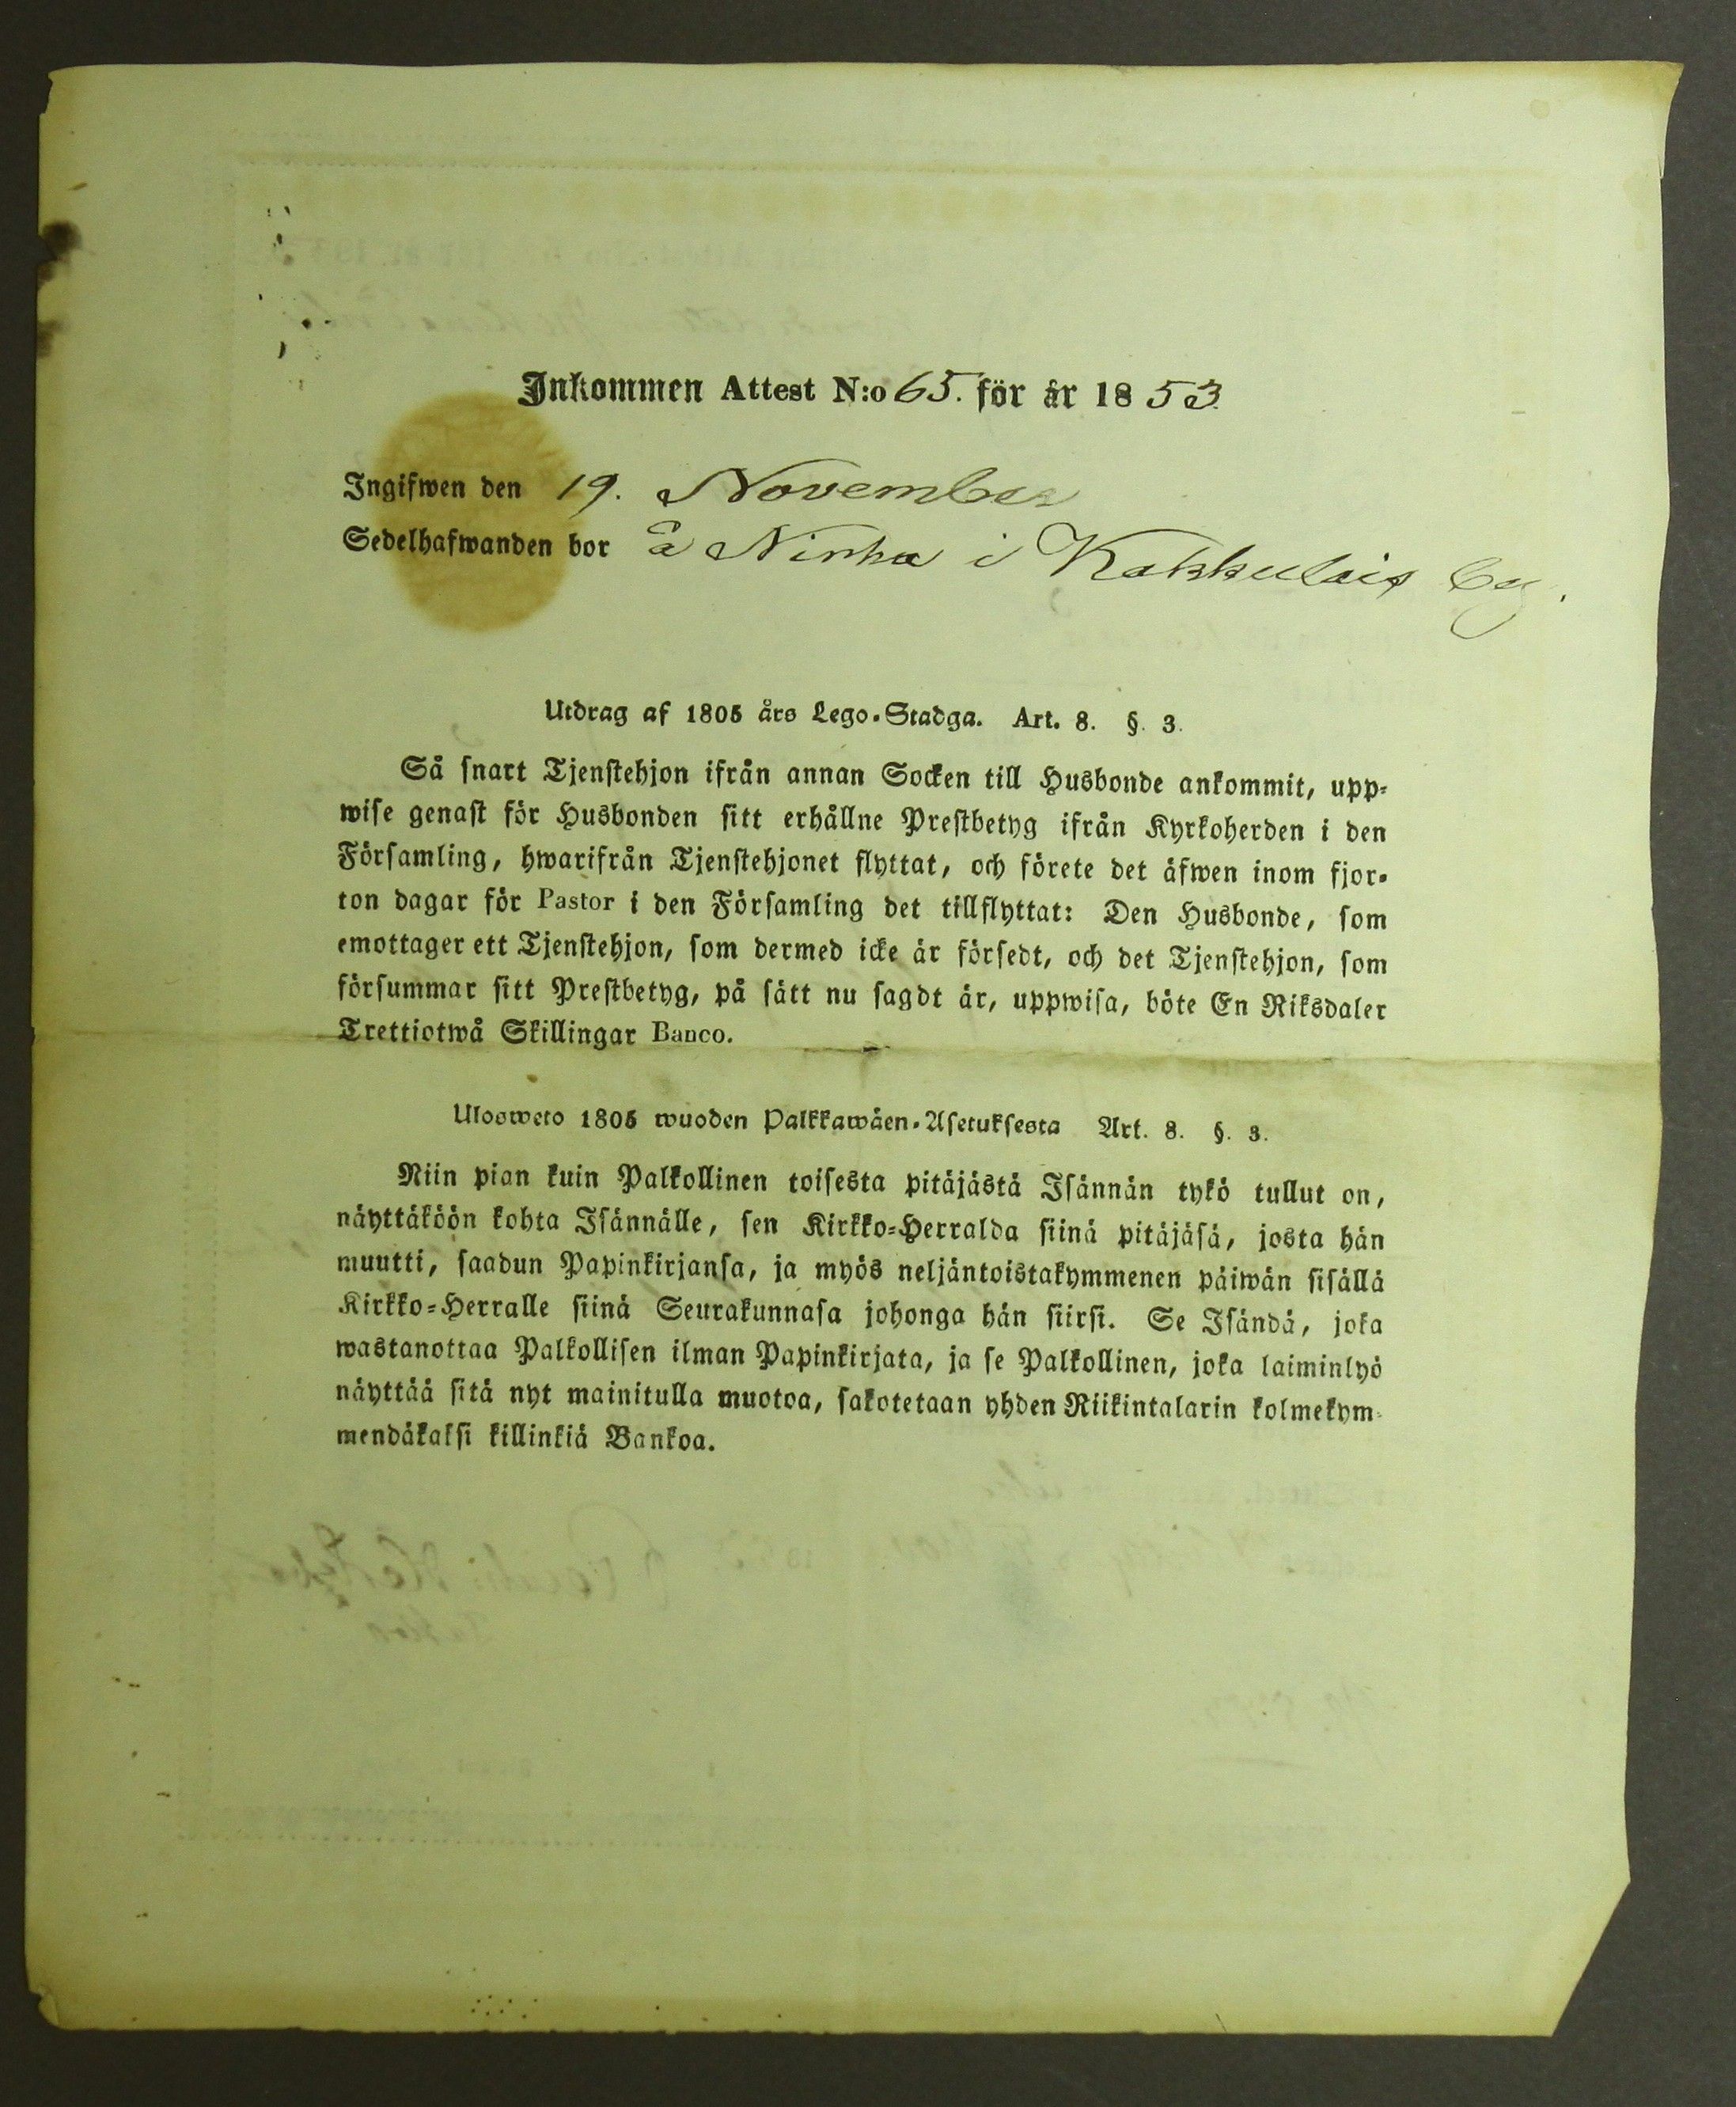 Inkommen Attest N:o 65. för år 1853.
Ingifwen den 19. November
Sedelhafwanden bor å Nirha i Kakkulais by.
Utdrag af 1805 års Lego-Stadga. Art. 8. §. 3.
Så snart Tjenstehjon ifrån annan Socken till Husbonde ankommit, upp-
wise genast för Husbonden sitt erhållne Prestbetyg ifrån Kyrkoherden i den
Församling, hwarifrån Tjenstehjonet flyttat, och förete det äfwen inom fjor-
ton dagar för Pastor i den Församling det tillflyttat: Den Husbonde, som
emottager ett Tjenstehjon, som dermed icke är försedt, och det Tjenstehjon, som
försummar sitt Prestbetyg, på sätt nu sagdt är, uppwisa, böte En Riksdaler
Trettiotwå Skillingar Banco.
Ulosweto 1805 wuoden Palkkawäen-Asetuksesta Art. 8. §. 3.
Niin pian kuin Palkollinen toisesta pitäjästä Isännän tykö tullut on,
näyttäköön kohta Isännälle, sen Kirkko-Herralda siinä pitäjäsä, josta hän
muutti, saadun Papinkirjansa, ja myös neljäntoistakymmenen päiwän sisällä
Kirkko-Herralle siinä Seurakunnasa johonga hän siirsi. Se Isändä, joka
wastanottaa Palkollisen ilman Papinkirjata, ja se Palkollinen, joka laiminlyö
näyttää sitä nyt mainitulla muotoa, sakotetaan yhden Riikintalarin kolmekym-
mendäkaksi killinkiä Bankoa.